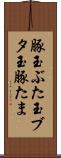 豚玉ぶた玉ブ
タ玉豚たま